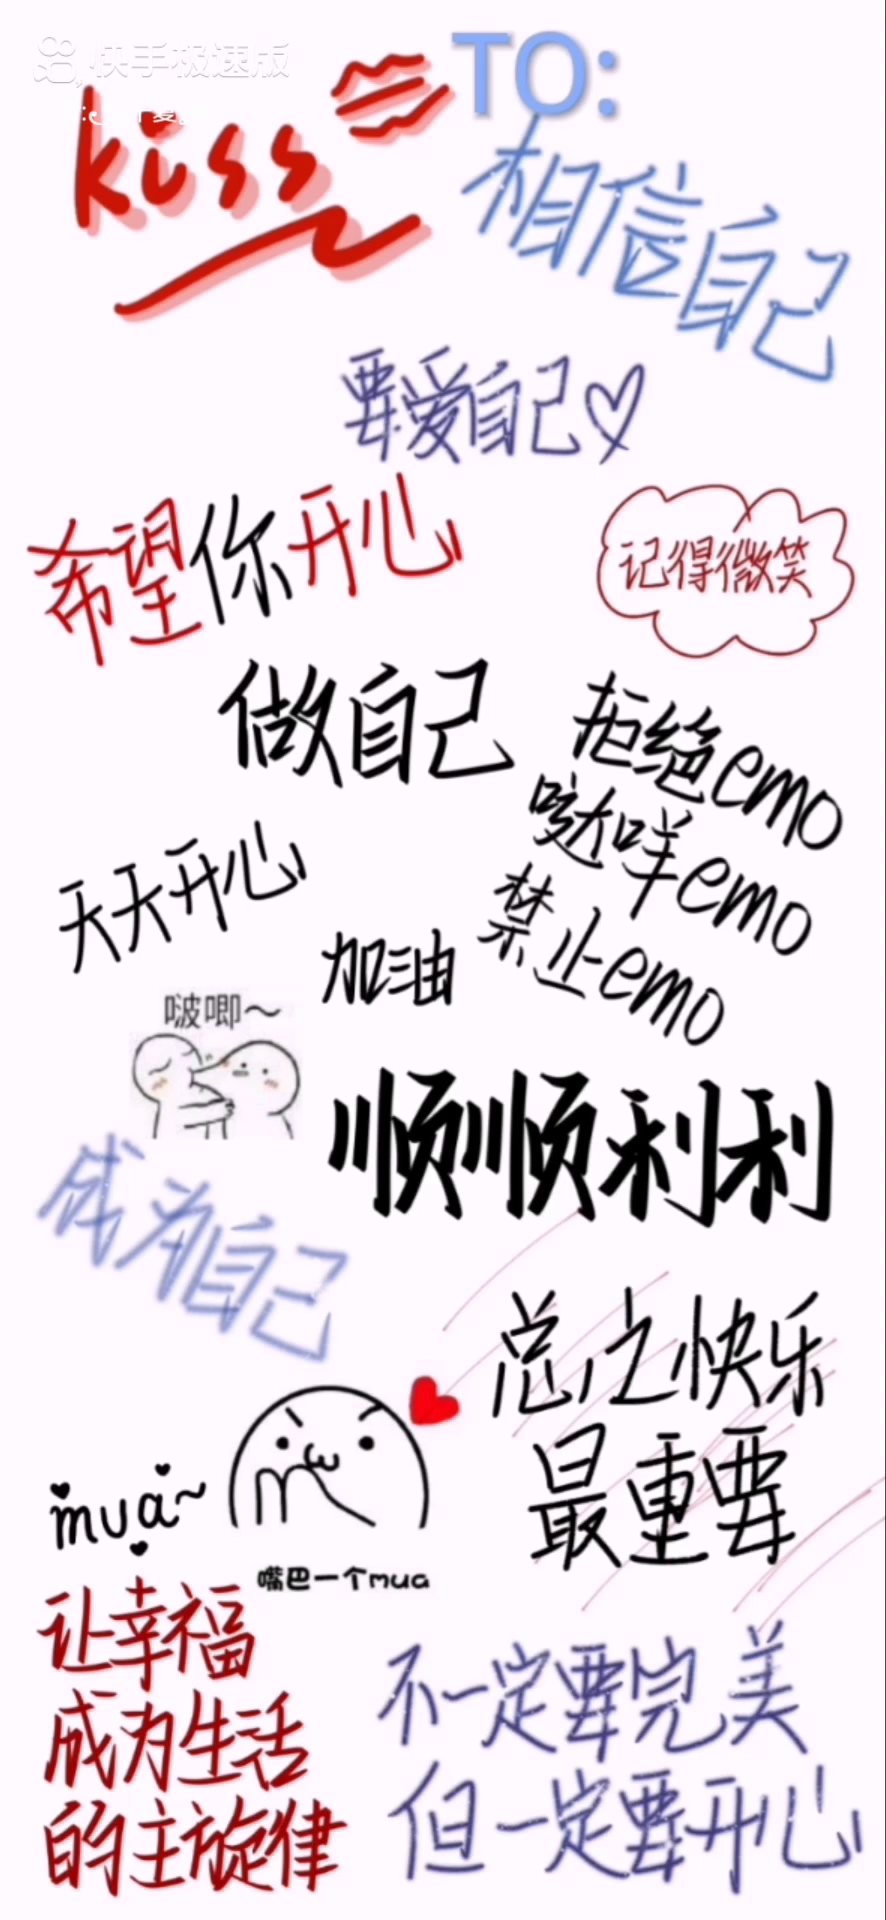 快手极速版
TO:
kiss
相信自己
要爱自己
希望你开心
记得微笑
做自己
拒绝emo
哒咩emo
禁止emo
天天开心
加油
啵唧～
顺顺利利
成为自己
总之快乐
最重要
mua~
嘴巴一个mua
让幸福
成为生活
的主旋律
不一定要完美
但一定要开心